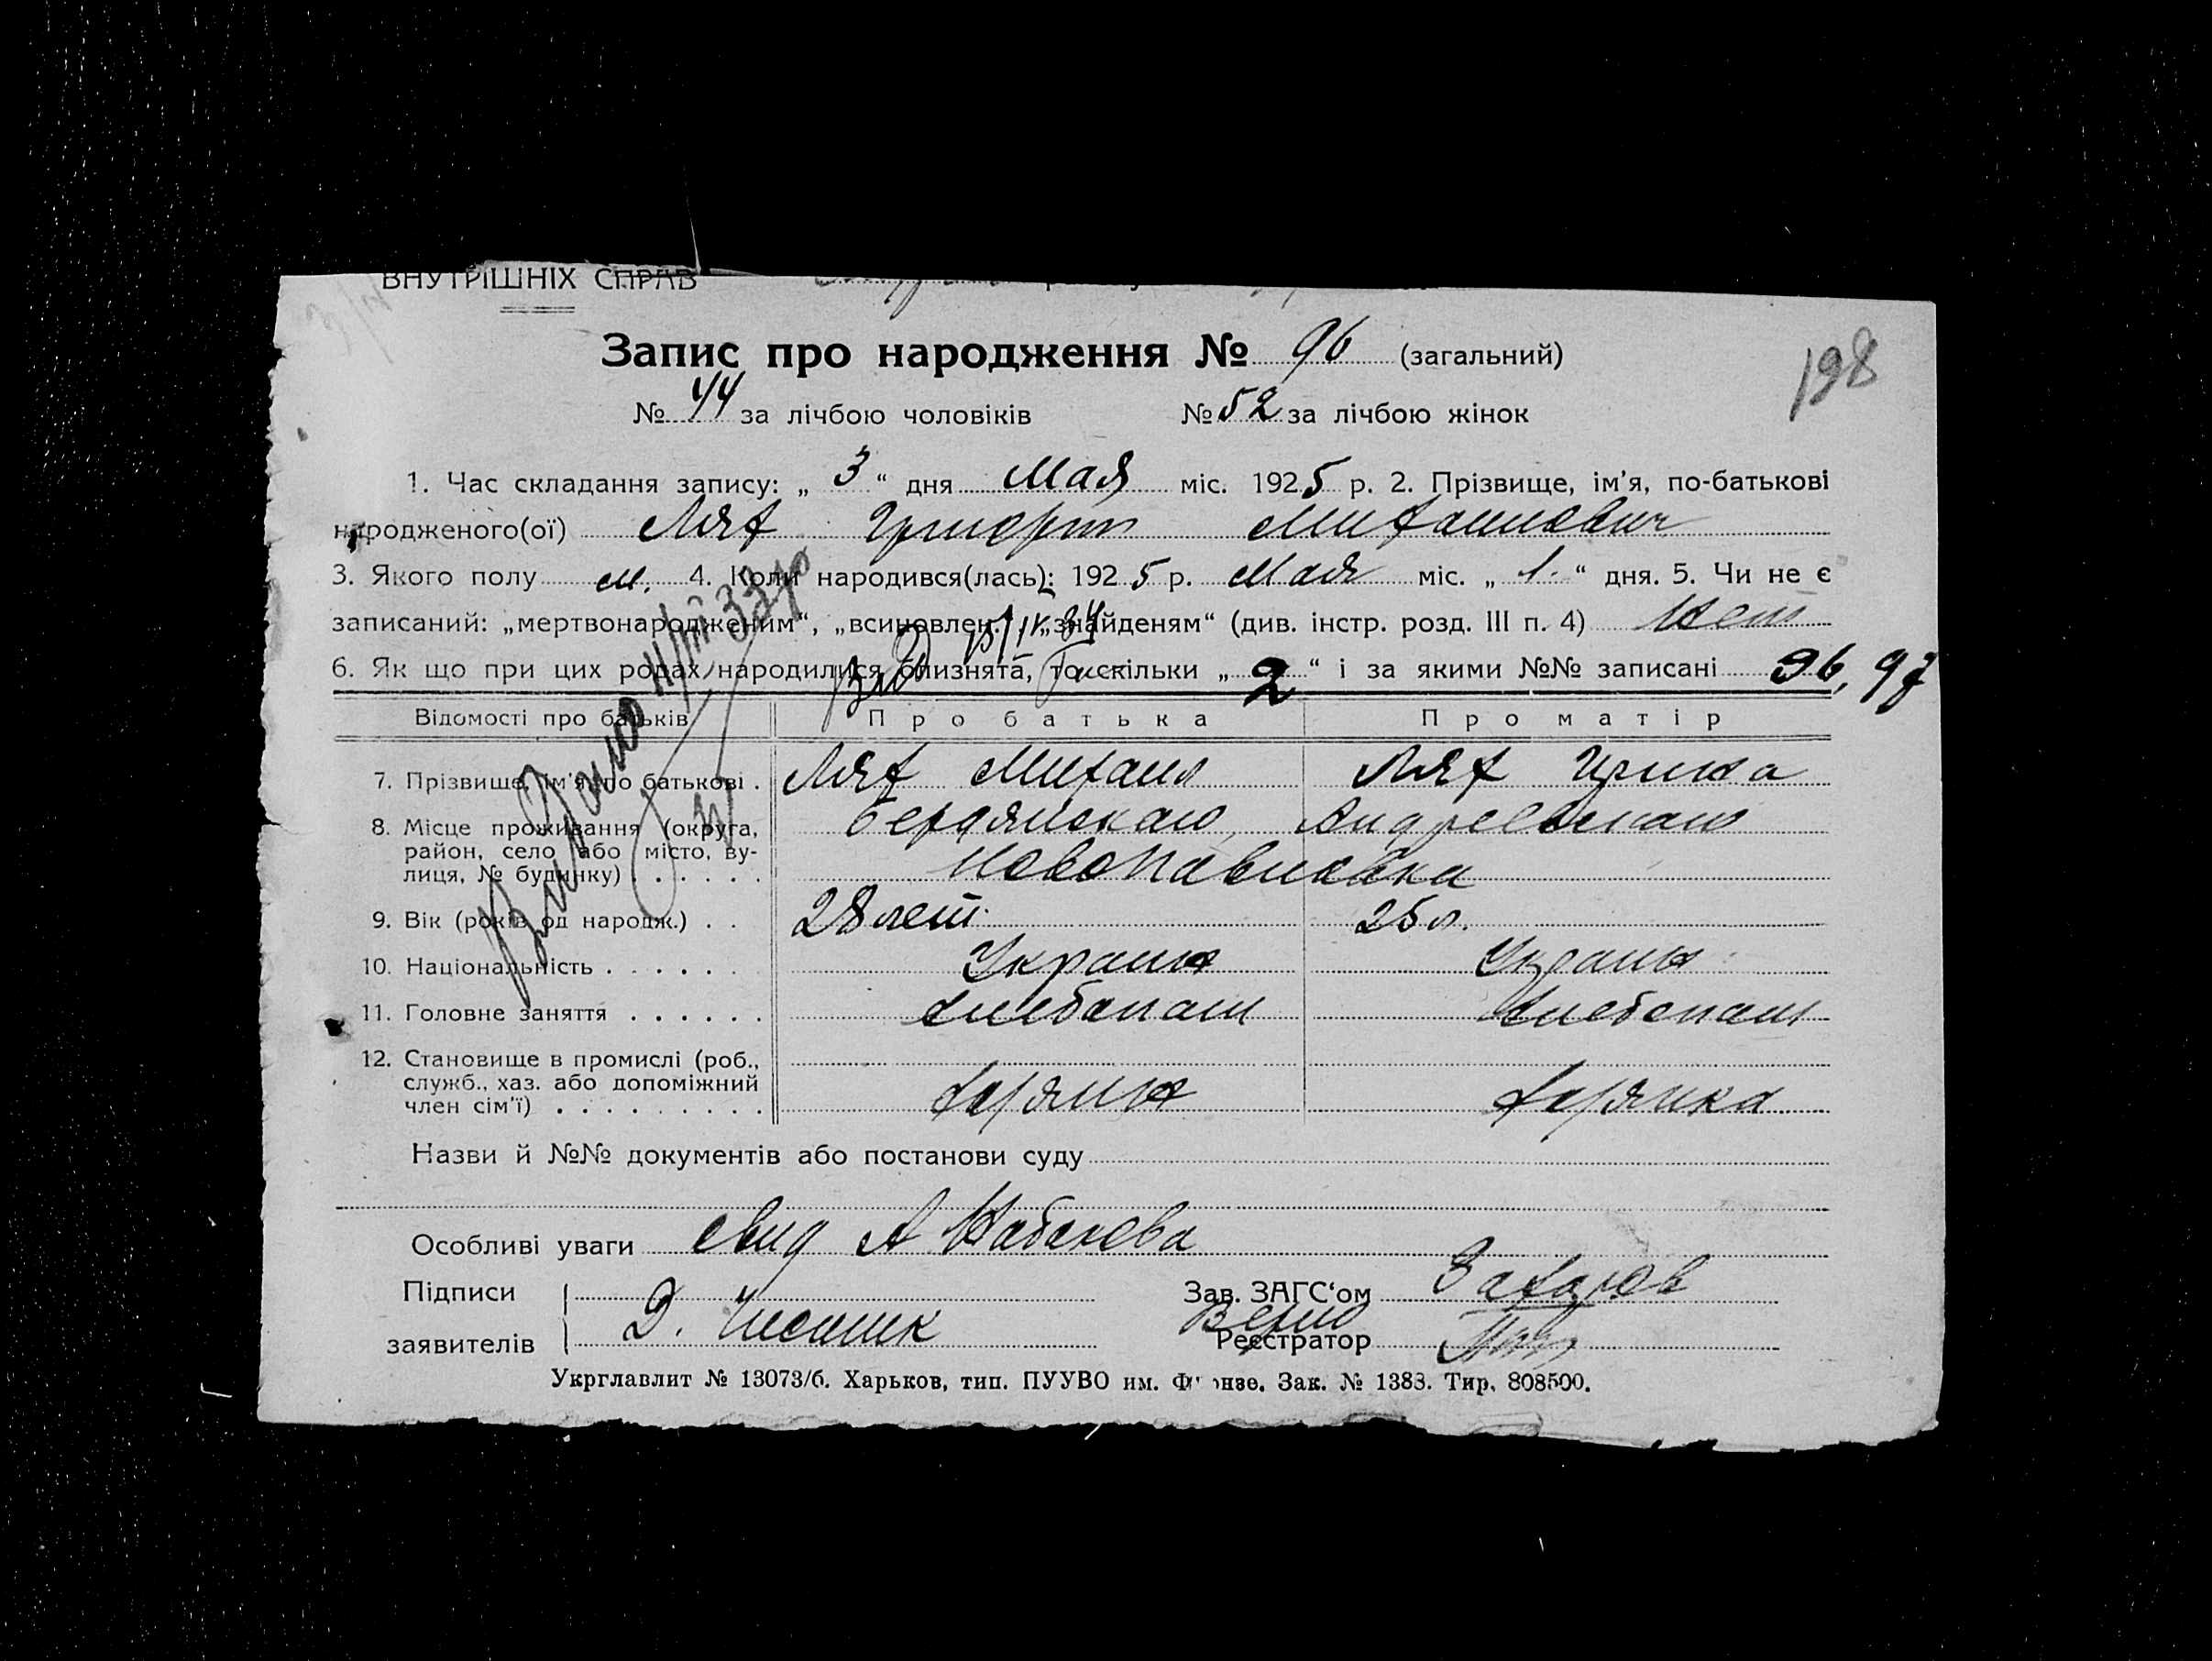 ВНУТРІШНІХ СПРАВ
Запис про народження № 96 (загальний)
198
№ 44 за лічбою чоловіків № 52 за лічбою жінок
1. Час складання запису: „ 3 “ дня Мая міс. 1925 р. 2. Прізвище, ім'я, по-батькові
народженого(ої) Лях Григорий Михайлович
3. Якого полу м. 4. Коли народився(лась): 1925 р. Мая міс. „ 1. “ дня. 5. Чи не є
записаний: „мертвонародженим“, „всиновлен.“, „знайденям“ (див. інстр. розд. III п. 4) Нет
6. Як що при цих родах народилися близнята, то скільки „ 2 “ і за якими №№ записані 96, 97
Відомості про батьків Про батька Про матір
7. Прізвище, ім'я, по батькові . Лях Михаил Лях Ирина
8. Місце проживання (округа, Бердянская, Андреевская
район, село або місто, ву-
лиця, № будинку) . . . . . . Новопавловка
9. Вік (років од народж.) . . 28 лет. 25 л.
10. Національність . . . . . . . Украин Украин
11. Головне заняття . . . . . . хлебопаш хлебопаш
12. Становище в промислі (роб.,
служб., хаз. або допоміжний
член сім'ї) . . . . . . . . . хозяин хозяйка
Назви й №№ документів або постанови суду
Особливі уваги свид А
Підписи Зав. ЗАГС'ом Захаров
Верно
заявителів Д. Реєстратор
Укрглавлит № 13073/б. Харьков, тип. ПУУВО им. Фрунзе. Зак. № 1383. Тир. 808500.